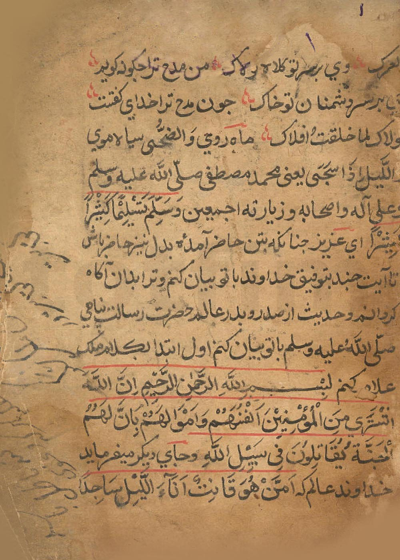 لعمرک وی بر سر تو کلاه لولاک من مدح ترا چکونه کویم
ای بر سر دشمنان تو خاک جون مدح ترا خدای کفتت
لولاک لما خلقت افلاک ماه روی والضحی سیاه موی
واللیل اذا سجی یعنی محمد مصطفی صلی الله علیه وسلم
وعلی آله واصحابه و زیارته اجمعین وسلم تسلیما کثیرا
کثیرا ای عزیز جنانکه بتن حاضر آمدهٔ بدل نیز حاضر باش
تا آیت جند بتوفیق خداوند با تو بیان کنم و ترا بدان آکاه
کردانم و حدیث از صدر و بدر عالم حضرت رسالت پناهی
صلی الله علیه وسلم با تو بیان کنم اول ابتدا بکلام ملک
علام کنم بسم الله الرحمن الرحیم ان الله
اشتری من المؤمنین انفسهم واموالهم بان لهم
الجنة یقاتلون فی سبیل الله وجای دیکر میفرماید
خداوند عالم که امن هو قانت آناء اللیل ساجدا